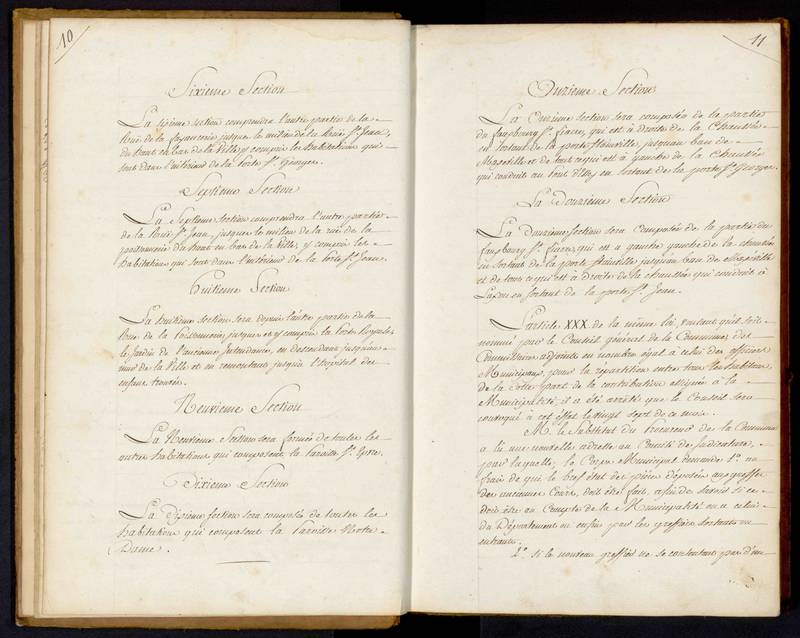 10
Sixieme Section
La sixieme section comprendra l'autre partie de la
Rue de la fayancerie jusques le milieu de la Rüe St. Jean,
du haut en bas de la Ville, y compris les habitations qui
sont dans l'intérieur de la Porte St. Georges.
Septieme Section
La Septieme section comprendra l'autre partie
de la Rüe St. Jean, jusques le milieu de la rüe de la
poissonnerie du haut en bas de la Ville, y compris les
habitations qui sont dans l'intérieur de la Porte St. Jean.
Huitieme Section
La huitieme section sera depuis l'autre partie de la
Rue de la Poissonnerie, jusques et y compris la Porte Royale,
le jardin de l'ancienne Intendance, en descendant jusqu'au
mur de la Ville et en remontant jusqu'à l'hôpital des
enfans trouvés.
Neuvieme Section
La Neuvieme Section sera formée de toutes les
autres habitations qui composent la Paroisse St. Epvre.
Dixieme Section
La dixieme section sera composée de toutes les
habitations qui composent la Paroisse Notre
Dame.
11
Onzieme Section
La Onzieme section sera composée de la partie
du fauxbourg St. fiacre, qui est à droite de la Chaussée
en sortant de la porte stainville, jusqu'au bas de
Maxéville et de tout ce qui est à gauche de la Chaussée
qui conduit au bout d'Essey en sortant de la porte St. Georges.
La Douzieme Section
La Douzieme section sera Composée de la partie du
fauxbourg St. fiacre qui est a gauche gauche de la chaussée
en sortant de la porte stainville jusqu'au bas de Maxéville
et de tous ce qui est à droite de la chaussée qui conduit à
en sortant de la porte St. Jean.
L'article XXX. de la même loi, voulant qu'il soit
nommé par le Conseil général de la Commune des
Commissaires adjoints en nombre égal à celui des officiers
Municipaux, pour la répartition entre tous les habitans,
de la Cotte part de la contribution assignée à la
Municipalité, il a été arrêté que le Conseil sera
convoqué à cet effet le vingt sept de ce mois.
M. le substitut du Procureur de la Commune
a lû une nouvelle adresse au Comité de judicature,
par laquelle, le Corps Municipal demande 1°. au
frais de qui le bref état des pièces déposées aux greffes
des anciennes Cours, doit être fait, afin de savoir si ce
doit être au Compte de la Municipalité ou a celui
du Département ou enfin par les greffiers sortants ou
entrants.
2°. si le nouveau greffier ne se contentant pas d'un